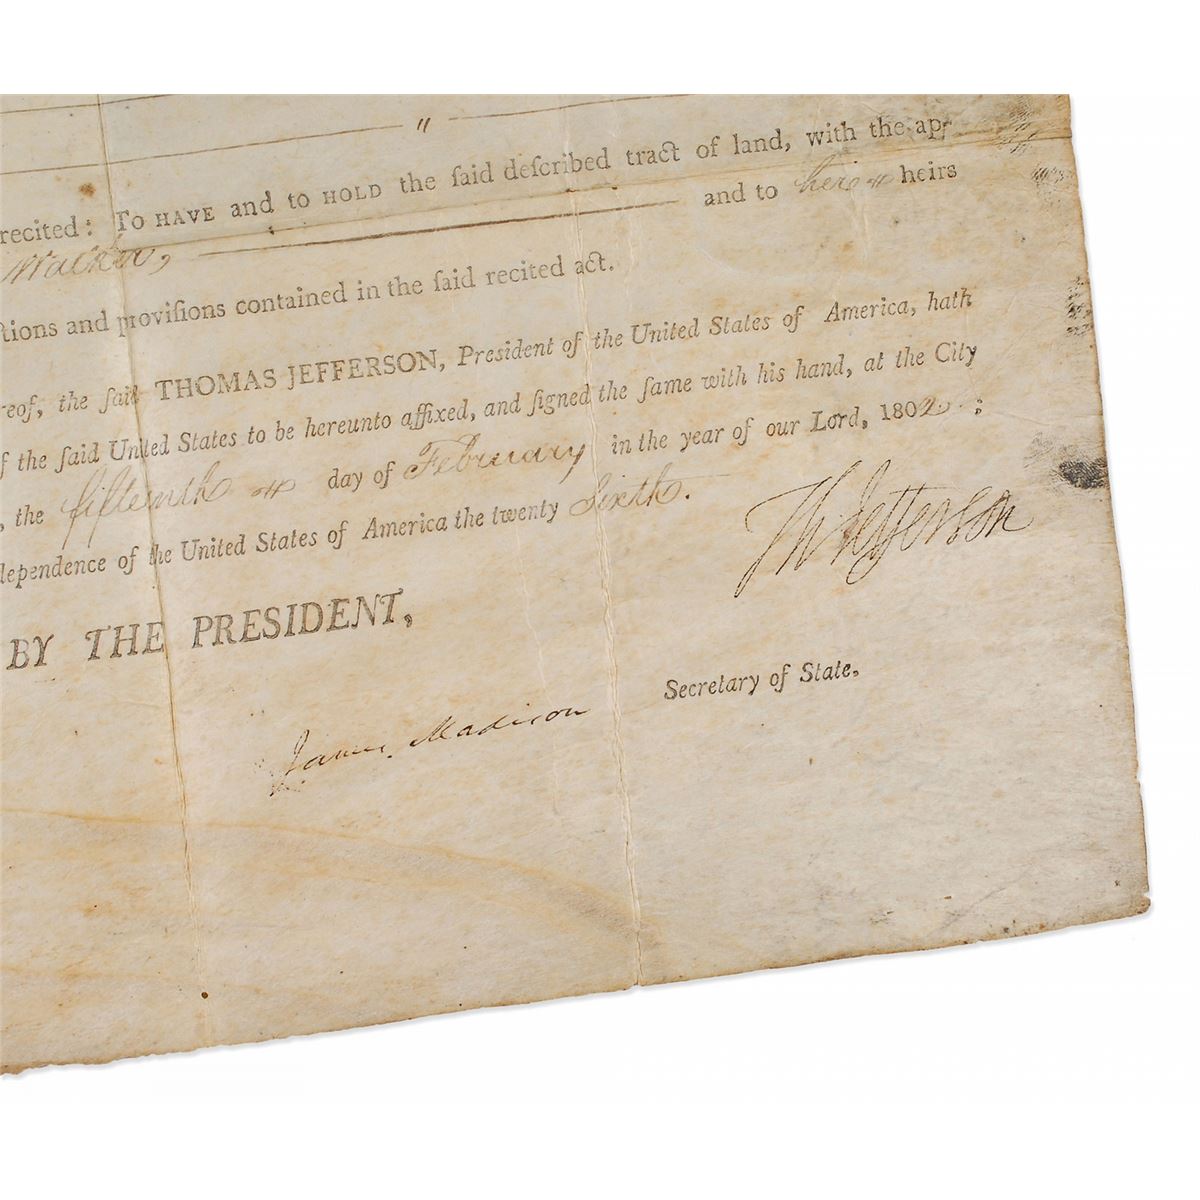 "
recited: To HAVE and to HOLD the ſaid deſcribed tract of land, with the ap-
Walker, and to her " heirs
ctions and proviſions contained in the ſaid recited act.
reof, the ſaid THOMAS JEFFERSON, Preſident of the United States of America, hath
f the ſaid United States to be hereunto affixed, and ſigned the ſame with his hand, at the City
, the fifteenth " day of February in the year of our Lord, 1802 ;
dependence of the United States of America the twenty Sixth.
Th Jefferson
BY THE PRESIDENT,
James Madison Secretary of State.